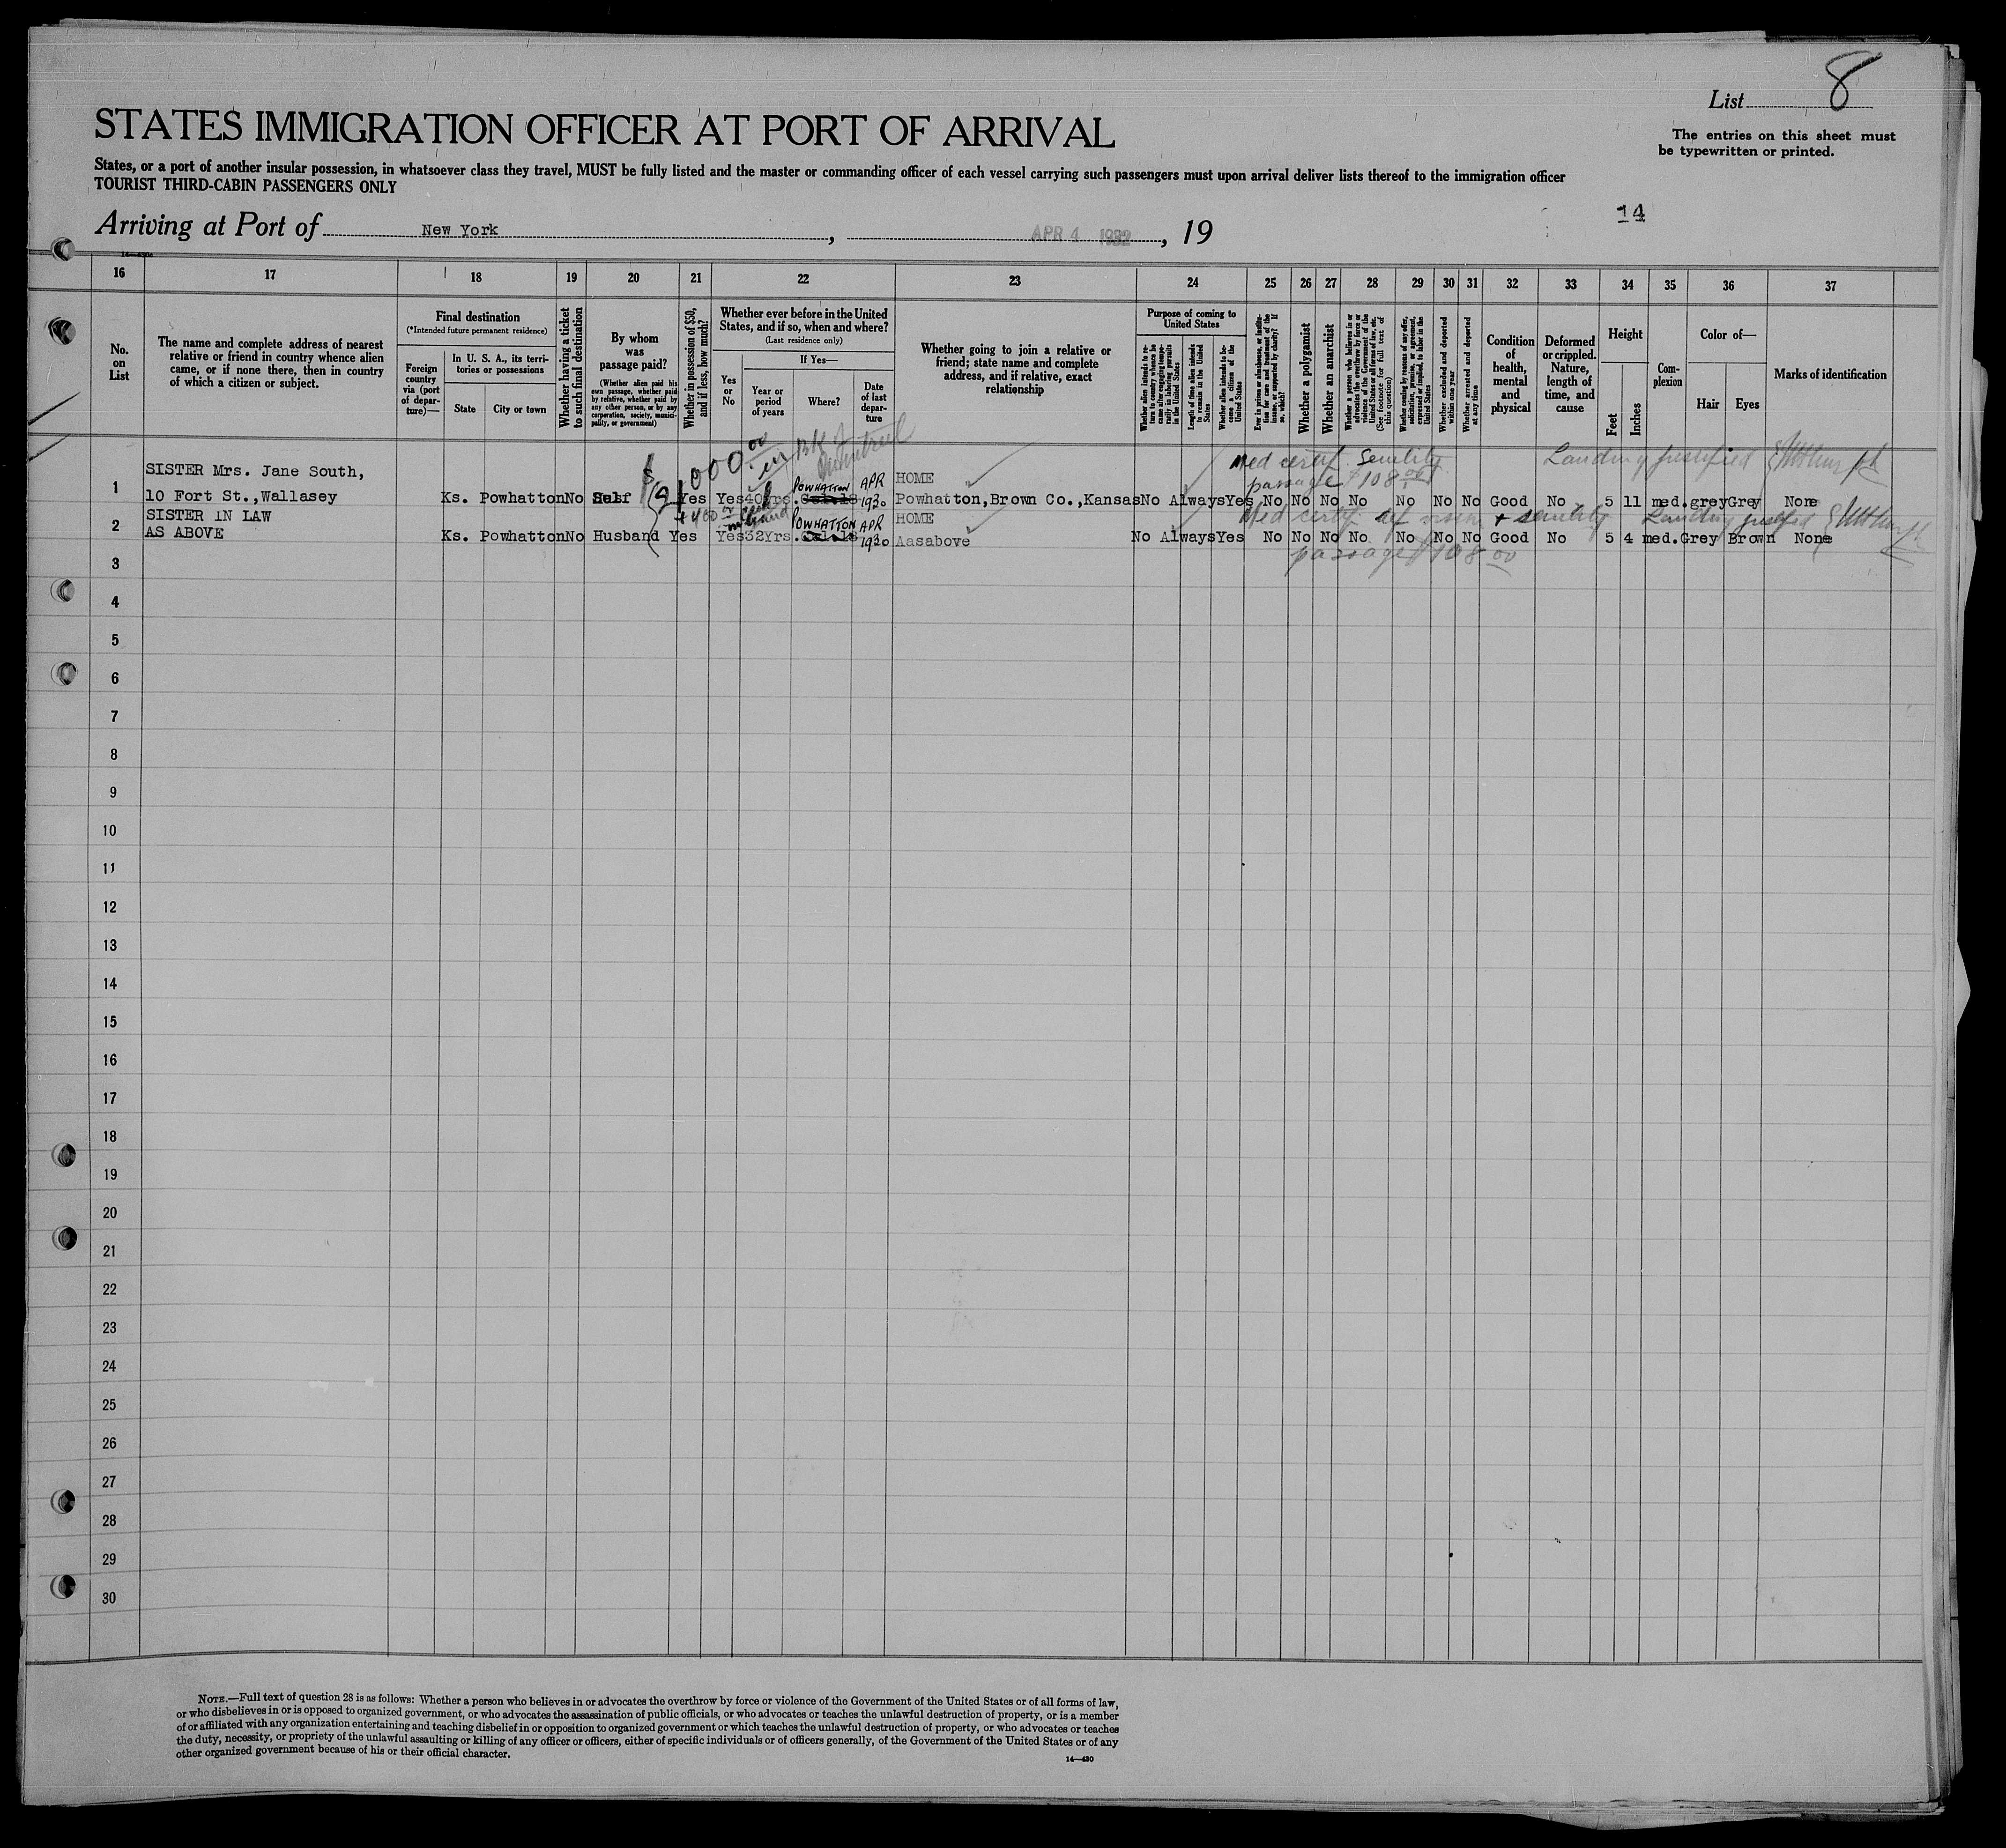 List 8
STATES IMMIGRATION OFFICER AT PORT OF ARRIVAL
The entries on this sheet must
be typewritten or printed.
States, or a port of another insular possession, in whatsoever class they travel, MUST be fully listed and the master or commanding officer of each vessel carrying such passengers must upon arrival deliver lists thereof to the immigration officer
TOURIST THIRD-CABIN PASSENGERS ONLY
14
Arriving at Port of New York, APR 4 1932, 19
16 17 18 19 20 21 22 23 24 25 26 27 28 29 30 31 32 33 34 35 36 37
No.
on
List
The name and complete address of nearest
relative or friend in country whence alien
came, or if none there, then in country
of which a citizen or subject.
Final destination
(*Intended future permanent residence)
Foreign
country
via (port
of depar-
ture)—
In U. S. A., its terri-
tories or possessions
State City or town
Whether having a ticket
to such final destination
By whom
was
passage paid?
(Whether alien paid his
own passage, whether paid
by relative, whether paid by
any other person, or by any
corporation, society, munici-
pality, or government)
Whether in possession of $50,
and if less, how much?
Whether ever before in the United
States, and if so, when and where?
(Last residence only)
Yes
or
No
If Yes—
Year or
period
of years
Where?
Date
of last
depar-
ture
Whether going to join a relative or
friend; state name and complete
address, and if relative, exact
relationship
Purpose of coming to
United States
Whether alien intends to re-
turn to country whence he
came after engaging tempo-
rarily in laboring pursuits
in the United States
Length of time alien intends
to remain in the United
States
Whether alien intends to be-
come a citizen of the
United States
Ever in prison or almshouse, or institu-
tion for care and treatment of the
insane, or supported by charity? If
so, which?
Whether a polygamist
Whether an anarchist
Whether a person who believes in or
advocates the overthrow by force or
violence of the Government of the
United States or all forms of law, etc.
(See footnote for full text of
this question)
Whether coming by reason of any offer,
solicitation, promise, or agreement,
expressed or implied, to labor in the
United States
Whether excluded and deported
within one year
Whether arrested and deported
at any time
Condition
of
health,
mental
and
physical
Deformed
or crippled.
Nature,
length of
time, and
cause
Height
Feet
Inches
Com-
plexion
Color of—
Hair Eyes
Marks of identification
$21000 00
in Bk of
Med certif. Senility Landing justified
SISTER Mrs. Jane South, POWHATTAN APR HOME passage $108 00
1 10 Fort St.,Wallasey Ks. Powhatton No Self Yes Yes 40yrs. 1930 Powhatton,Brown Co.,Kansas No Always Yes No No No No No No No Good No 5 11 med. grey Grey None
SISTER IN LAW + 400 POWHATTON APR HOME Med certif. def vision + senility Landing justified
2 AS ABOVE Ks. Powhatton No Husband Yes Yes 32Yrs. 1930 Aasabove No Always Yes No No No No No No No Good No 5 4 med. Grey Brown None
passage $108 00
3
4
5
6
7
8
9
10
11
12
13
14
15
16
17
18
19
20
21
22
23
24
25
26
27
28
29
30
NOTE.—Full text of question 28 is as follows: Whether a person who believes in or advocates the overthrow by force or violence of the Government of the United States or of all forms of law,
or who disbelieves in or is opposed to organized government, or who advocates the assassination of public officials, or who advocates or teaches the unlawful destruction of property, or is a member
of or affiliated with any organization entertaining and teaching disbelief in or opposition to organized government or which teaches the unlawful destruction of property, or who advocates or teaches
the duty, necessity, or propriety of the unlawful assaulting or killing of any officer or officers, either of specific individuals or of officers generally, of the Government of the United States or of any
other organized government because of his or their official character.
14—430